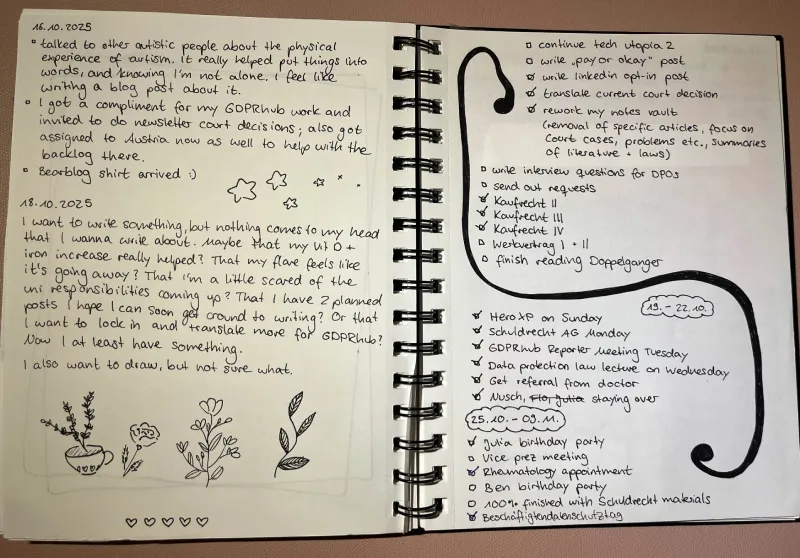 16.10.2025
talked to other autistic people about the physical
experience of autism. It really helped put things into
words, and knowing I'm not alone. I feel like
writing a blog post about it.
I got a compliment for my GDPRhub work and
invited to do newsletter court decisions; also got
assigned to Austria now as well to help with the
backlog there.
Bearblog shirt arrived :)
18.10.2025
I want to write something, but nothing comes to my head
that I wanna write about. Maybe that my Vit D +
iron increase really helped? That my flare feels like
it's going away? That I'm a little scared of the
uni responsibilities coming up? That I have 2 planned
posts I hope I can soon get around to writing? Or that
I want to lock in and translate more for GDPRhub?
Now I at least have something.
I also want to draw, but not sure what.
continue tech utopia 2
write "pay or okay" post
write linkedin opt-in post
translate current court decision
rework my notes vault
(removal of specific articles, focus on
court cases, problems etc., summaries
of literature + laws)
write interview questions for DPOs
send out requests
Kaufrecht II
Kaufrecht III
Kaufrecht IV
Werkvertrag I + II
finish reading Doppelganger
19. - 22.10.
HeroXP on Sunday
Schuldrecht AG Monday
GDPRhub Reporter Meeting Tuesday
Data protection law lecture on Wednesday
Get referral from doctor
Nusch, Flo, Julia staying over
25.10. - 09.11.
Julia birthday party
Vice prez meeting
Rheumatology appointment
Ben birthday party
100% finished with Schuldrecht materials
Beschäftigtendatenschutztag